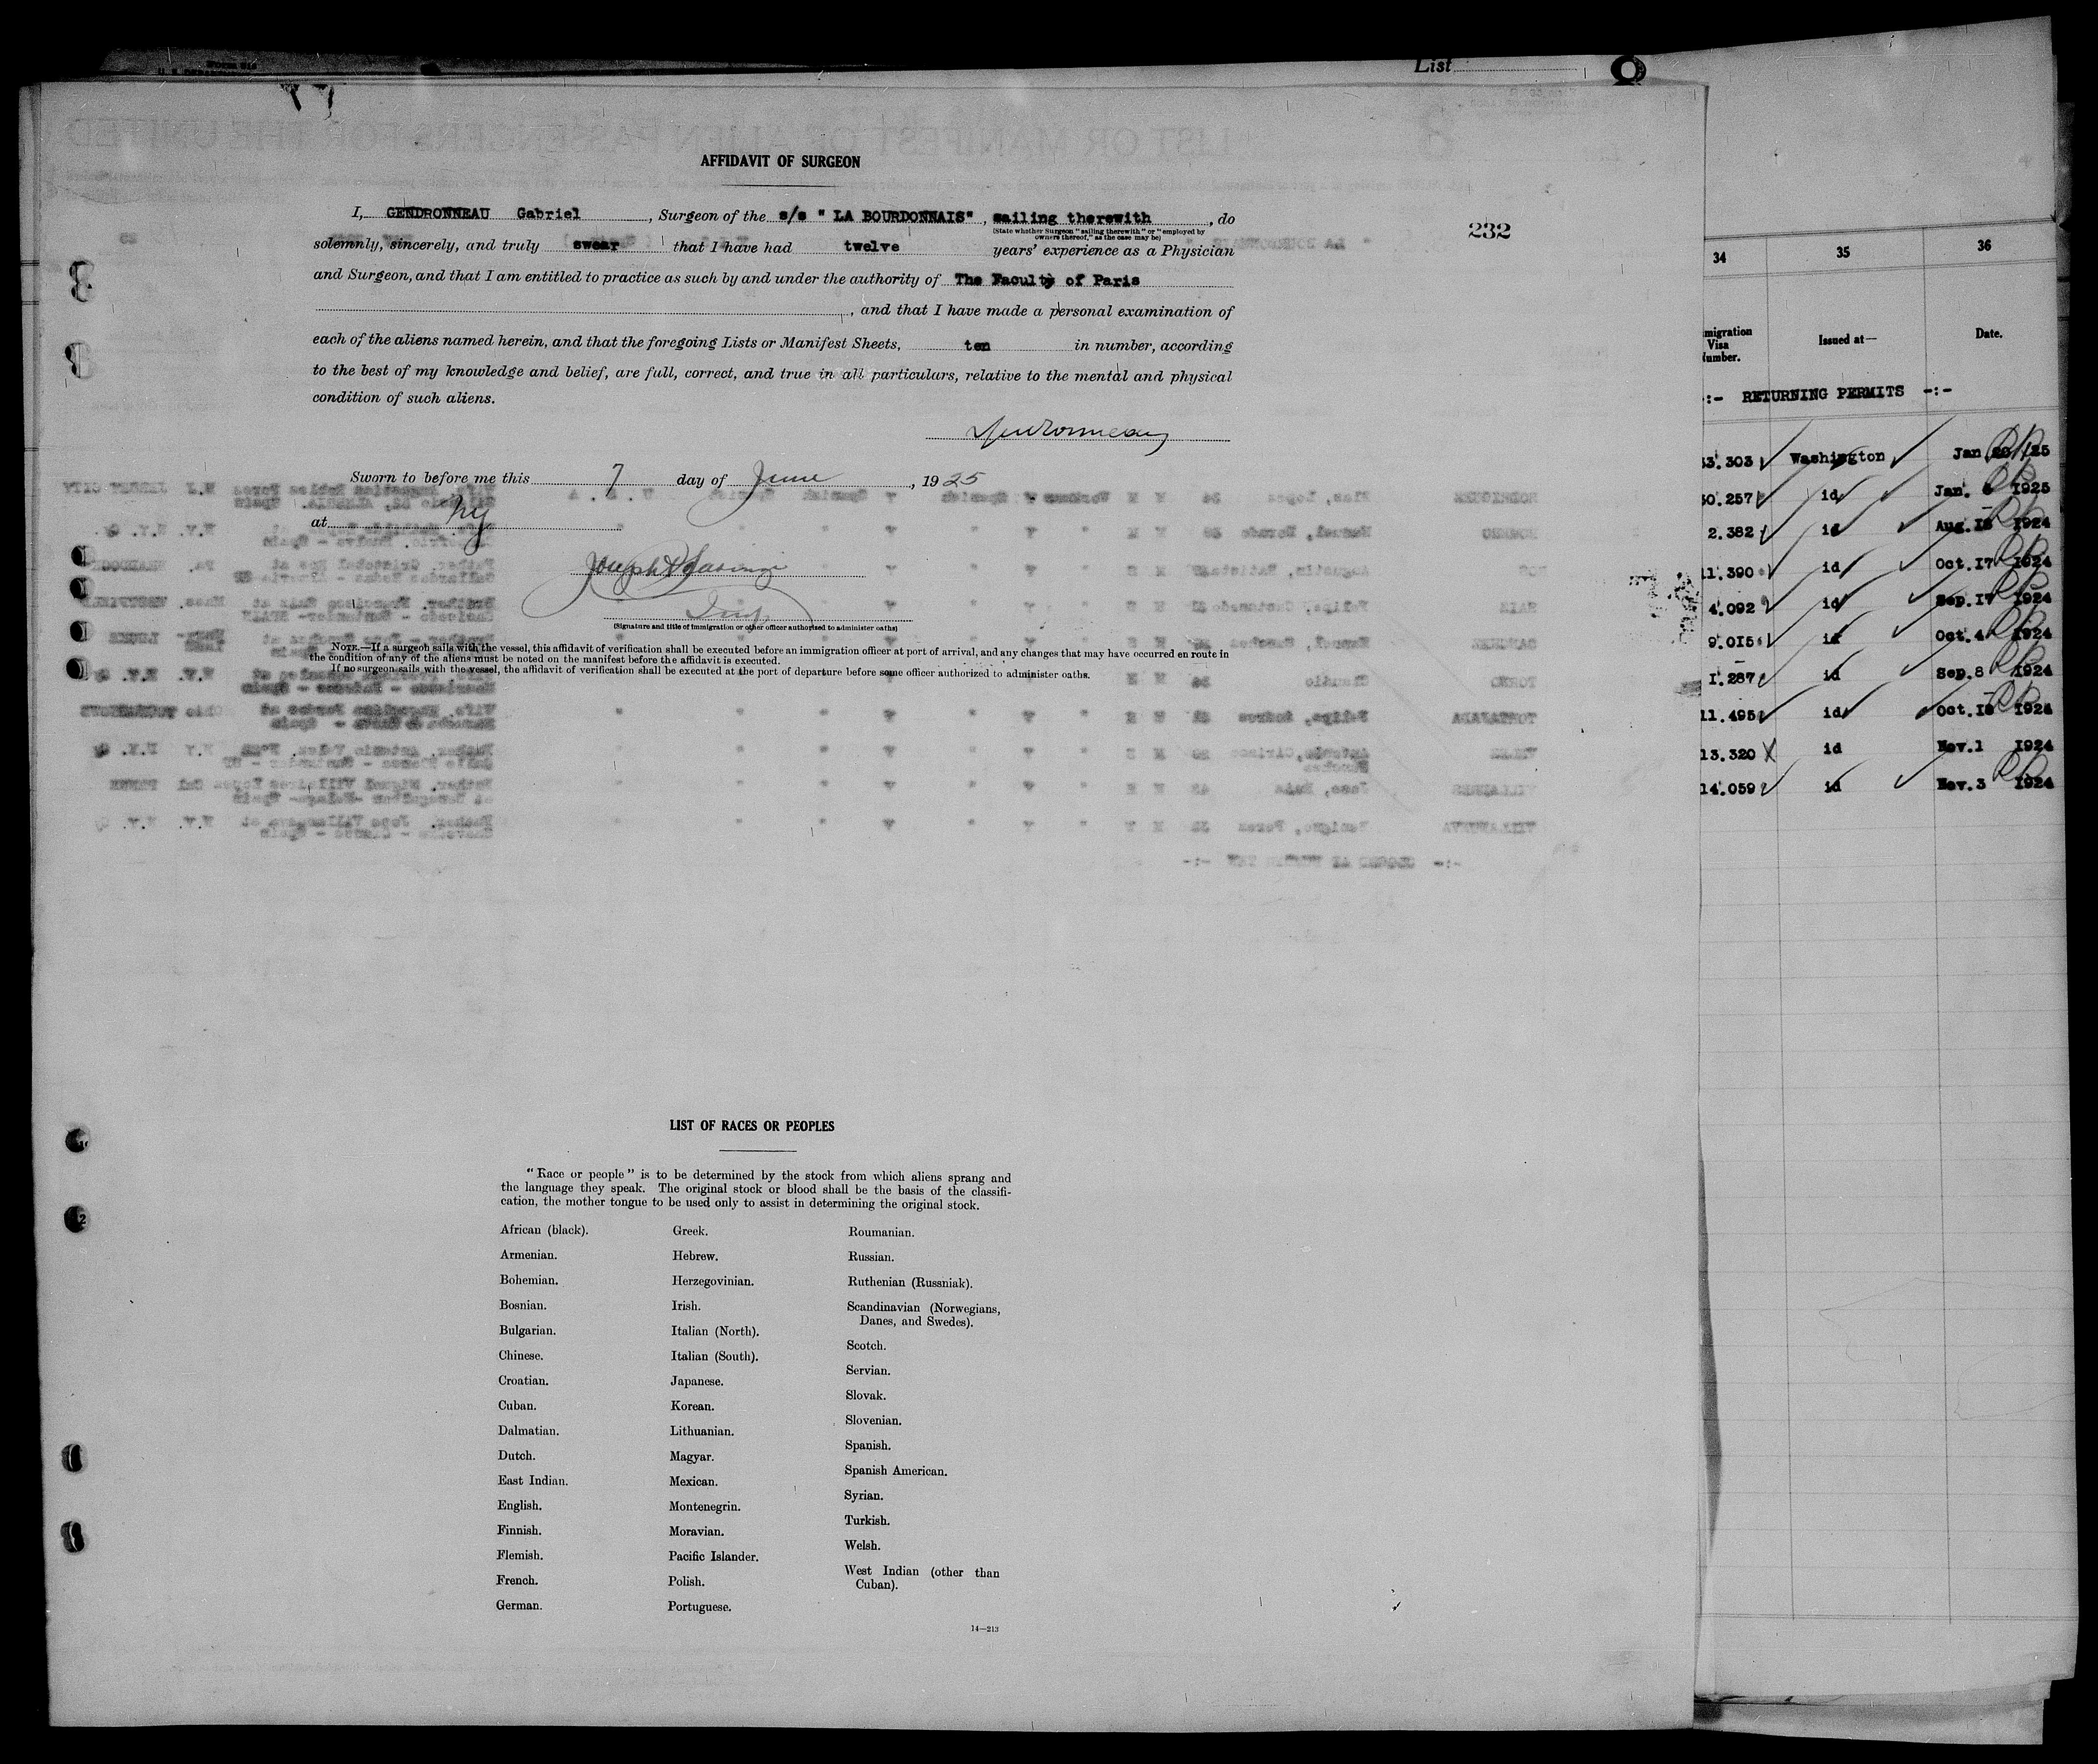 List
AFFIDAVIT OF SURGEON
I, GENDRONNEAU Gabriel, Surgeon of the s/s " LA BOURDONNAIS", sailing therewith, do
(State whether Surgeon "sailing therewith" or "employed by
owners thereof," as the case may be)
232
solemnly, sincerely, and truly swear that I have had twelve years' experience as a Physician
and Surgeon, and that I am entitled to practice as such by and under the authority of The Faculty of Paris
, and that I have made a personal examination of
each of the aliens named herein, and that the foregoing Lists or Manifest Sheets, ten in number, according
to the best of my knowledge and belief, are full, correct, and true in all particulars, relative to the mental and physical
condition of such aliens.
Gendronneau
Sworn to before me this 7 day of June, 1925
at NY
Joseph
Insp
(Signature and title of immigration or other officer authorized to administer oaths)
NOTE.—If a surgeon sails with the vessel, this affidavit of verification shall be executed before an immigration officer at port of arrival, and any changes that may have occurred en route in
the condition of any of the aliens must be noted on the manifest before the affidavit is executed.
If no surgeon sails with the vessel, the affidavit of verification shall be executed at the port of departure before some officer authorized to administer oaths.
LIST OF RACES OR PEOPLES
"Race or people" is to be determined by the stock from which aliens sprang and
the language they speak. The original stock or blood shall be the basis of the classifi-
cation, the mother tongue to be used only to assist in determining the original stock.
African (black).
Armenian.
Bohemian.
Bosnian.
Bulgarian.
Chinese.
Croatian.
Cuban.
Dalmatian.
Dutch.
East Indian.
English.
Finnish.
Flemish.
French.
German.
Greek.
Hebrew.
Herzegovinian.
Irish.
Italian (North).
Italian (South).
Japanese.
Korean.
Lithuanian.
Magyar.
Mexican.
Montenegrin.
Moravian.
Pacific Islander.
Polish.
Portuguese.
Roumanian.
Russian.
Ruthenian (Russniak).
Scandinavian (Norwegians,
Danes, and Swedes).
Scotch.
Servian.
Slovak.
Slovenian.
Spanish.
Spanish American.
Syrian.
Turkish.
Welsh.
West Indian (other than
Cuban).
14—213
34 35 36
migration
Visa
umber.
Issued at—
Date.
:- RETURNING PERMITS -:-
3.303 Washington Jan 20 /25
0.257 id Jan. 1925
2.382 id Aug.18 1924
11.390 id Oct.17 1924
4.092 id Sep.17 1924
9.015 id Oct.4 1924
1.287 id Sep.8 1924
11.495 id Oct.18 1924
13.320 X id Nov.1 1924
14.059 id Nov.3 1924